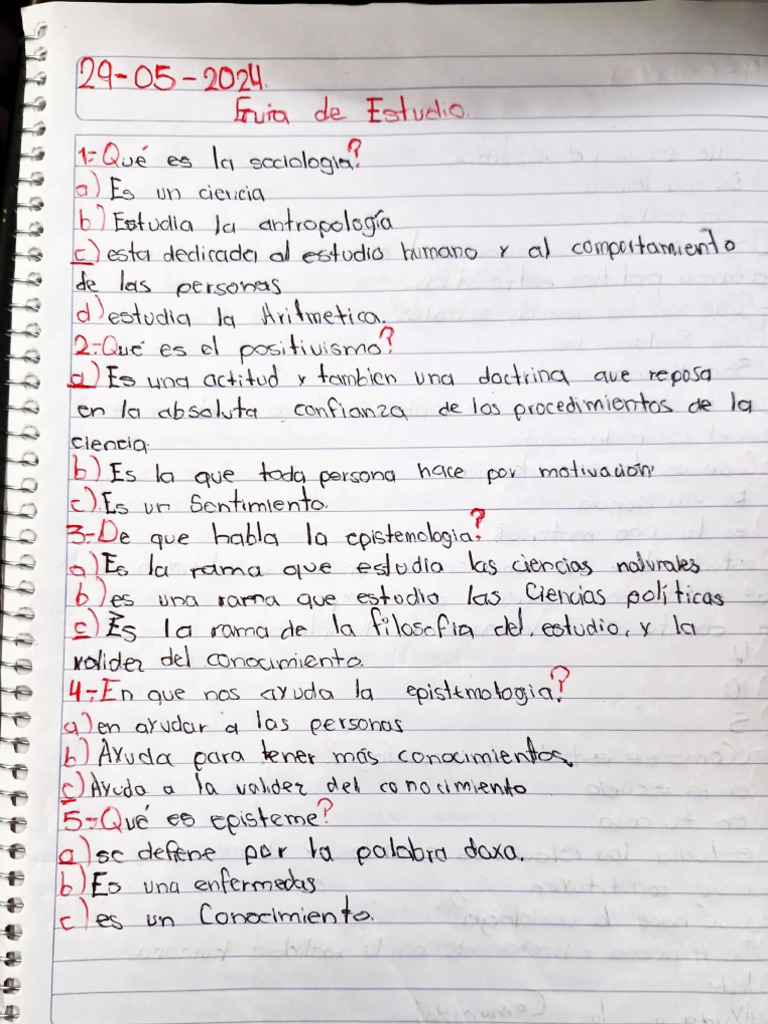 29-05-2024.
Guia de Estudio.
1-Qué es la sociologia?
a) Es un ciencia
b) Estudia la antropología
c) esta dedicada al estudio humano y al comportamiento
de las personas
d) estudia la Aritmetica.
2-Qué es el positivismo?
a) Es una actitud y tambien una doctrina que reposa
en la absoluta confianza de los procedimientos de la
ciencia.
b) Es la que toda persona hace por motivación
c) Es un Sentimiento.
3-De que habla la epistemologia?
a) Es la rama que estudia las ciencias naturales
b) es una rama que estudio las Ciencias políticas
c) Es la rama de la filosofia del estudio, y la
valider del conocimiento.
4-En que nos ayuda la epistemologia?
a) en ayudar a las personas
b) Ayuda para tener más conocimientos.
c) Ayuda a la valider del conocimiento
5-Qué es episteme?
a) se defene por la palabra doxa.
b) Es una enfermedas
c) es un Conocimiento.